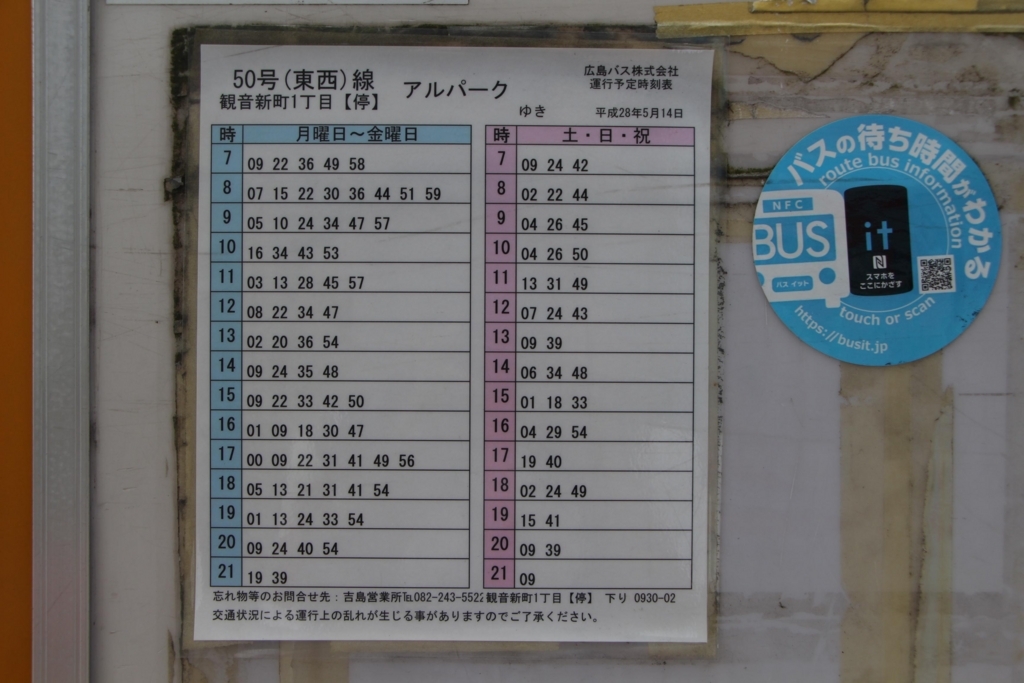 50号(東西)線 アルパーク ゆき
観音新町1丁目【停】
広島バス株式会社
運行予定時刻表
平成28年5月14日
時 月曜日～金曜日
7 09 22 36 49 58
8 07 15 22 30 36 44 51 59
9 05 10 24 34 47 57
10 16 34 43 53
11 03 13 28 45 57
12 08 22 34 47
13 02 20 36 54
14 09 24 35 48
15 09 22 33 42 50
16 01 09 18 30 47
17 00 09 22 31 41 49 56
18 05 13 21 31 41 54
19 01 13 24 33 54
20 09 24 40 54
21 19 39
時 土・日・祝
7 09 24 42
8 02 22 44
9 04 26 45
10 04 26 50
11 13 31 49
12 07 24 43
13 09 39
14 06 34 48
15 01 18 33
16 04 29 54
17 19 40
18 02 24 49
19 15 41
20 09 39
21 09
忘れ物等のお問合せ先：吉島営業所℡082-243-5522 観音新町1丁目【停】 下り 0930-02
交通状況による運行上の乱れが生じる事がありますのでご了承ください。
バスの待ち時間がわかる
route bus information
NFC
BUS
バス イット
it
N
スマホを
ここにかざす
touch or scan
https://busit.jp